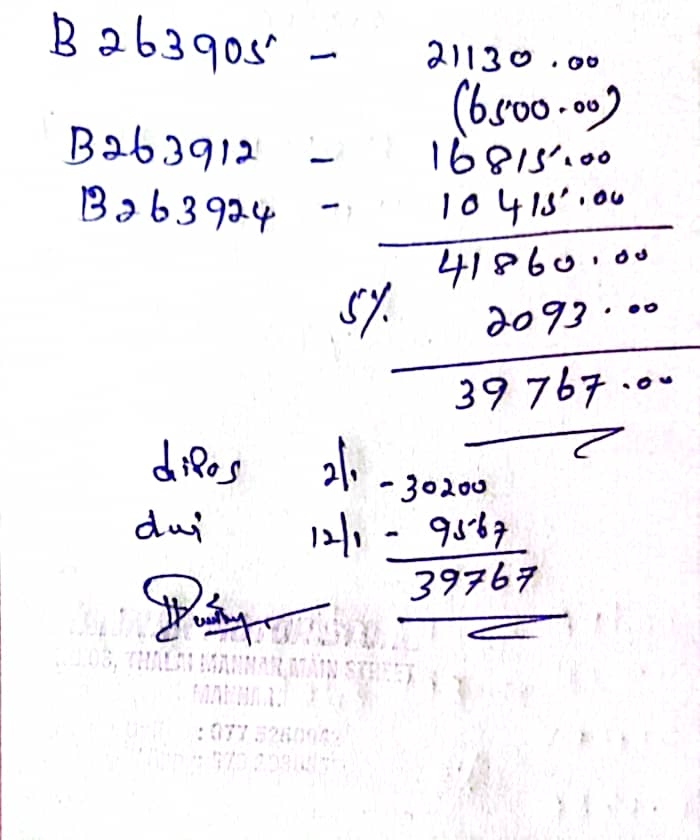 B 263905 - 21130.00
(6500.00)
B263912 - 16815.00
B263924 - 10415.00
41860.00
5% 2093.00
39767.00
2/1 - 30200
12/1 - 9567
39767
THALAI MANNAR, MAIN STREET
MANNAR
: 077